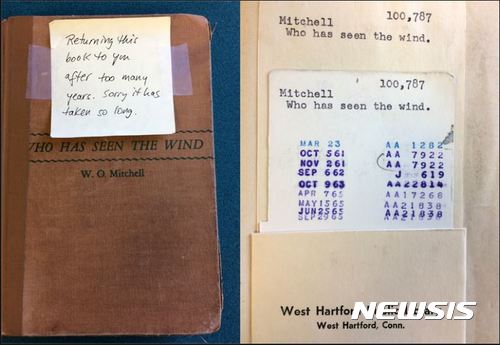 Returning this
book to you
after too many
years. Sorry it has
taken so long.
WHO HAS SEEN THE WIND
W. O. Mitchell
Mitchell 100,787
Who has seen the wind.
Mitchell 100,787
Who has seen the wind.
MAR 23 AA 1282
OCT 561 AA 7922
NOV 261 AA 7922
SEP 662 J 619
OCT 963 AA22814
APR 765 AA17268
MAY1565 AA21838
JUN2565 AA21838
SEP 65 AA21838
West Hartford
West Hartford, Conn.
NEWSIS